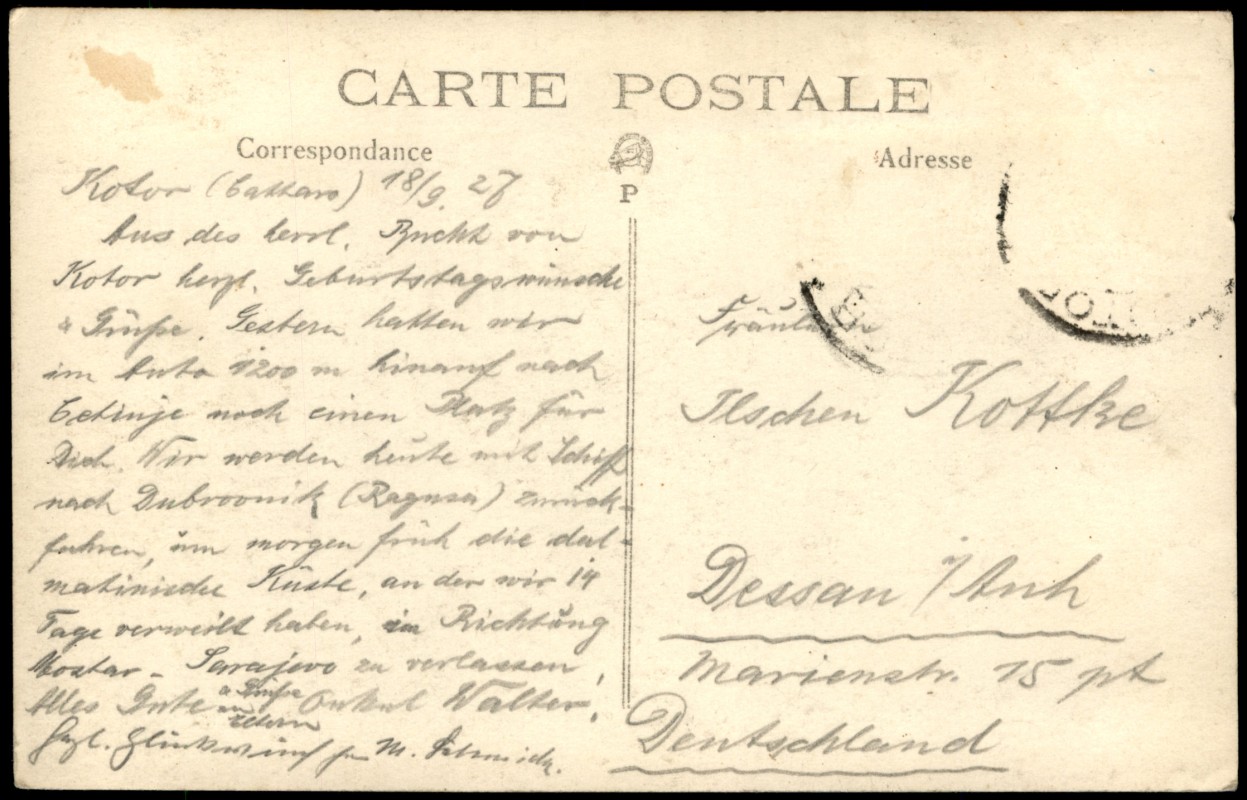 CARTE POSTALE
Correspondance
Adresse
P
Kotor (Cattaro) 18/9. 27
Aus der herrl. Bucht von
Kotor herzl. Geburtstagswünsche
u Grüße. Gestern hatten wir
im Auto 1200 m hinauf nach
Cetinje noch einen Platz für
Dich. Wir werden heute mit Schiff
nach Dubrovnik (Ragusa) zurück-
fahren, um morgen früh die dal-
matinische Küste, an der wir 14
Tage verweilt haben, in Richtung
Mostar - Sarajevo zu verlassen,
Alles Gute u Grüße an Eltern Onkel Walter.
Herzl. Glückwunsch
Fräulein
Ilschen Kottke
Dessau i/Anh
Marienstr. 15 pt
Deutschland